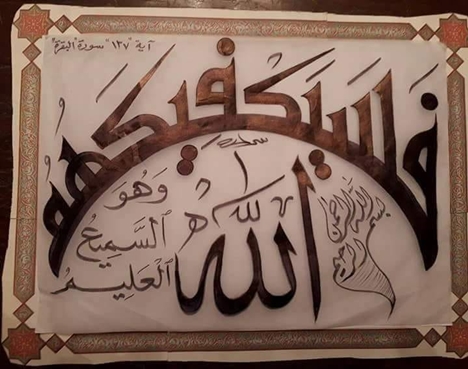 آية "١٣٧" سورة "البقرة"
بسم الله الرحمن الرحيم
فسيكفيكهم
الله
وَهُوَ
ٱلسَّمِيعُ
ٱلْعَلِيمُ